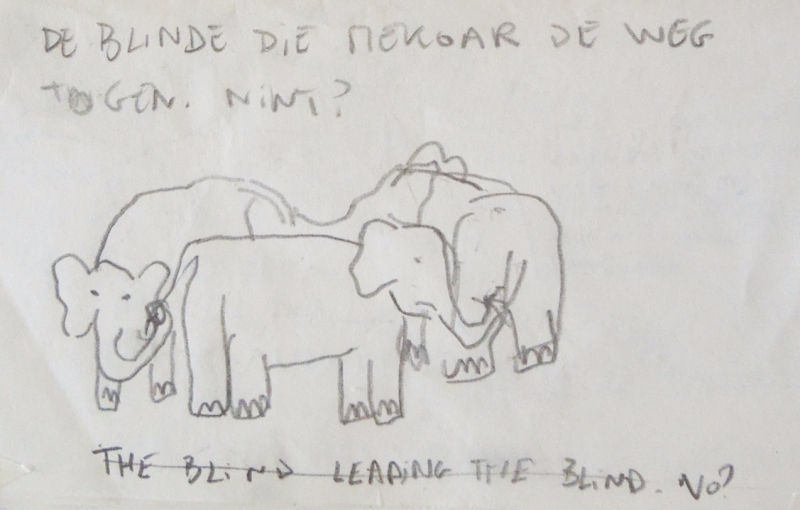 DE BLINDE DIE MEKOAR DE WEG
TOGEN. NiNT?
THE BLIND LEADING THE BLIND. NO?